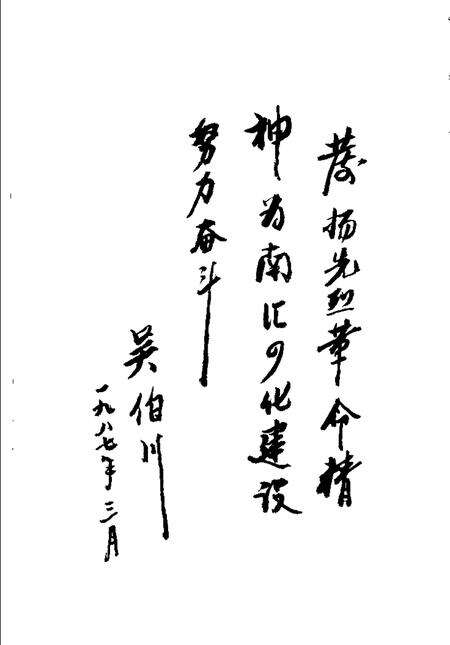 发扬先烈革命精
神为南汇四化建设
努力奋斗
吴伯川
一九八七年三月